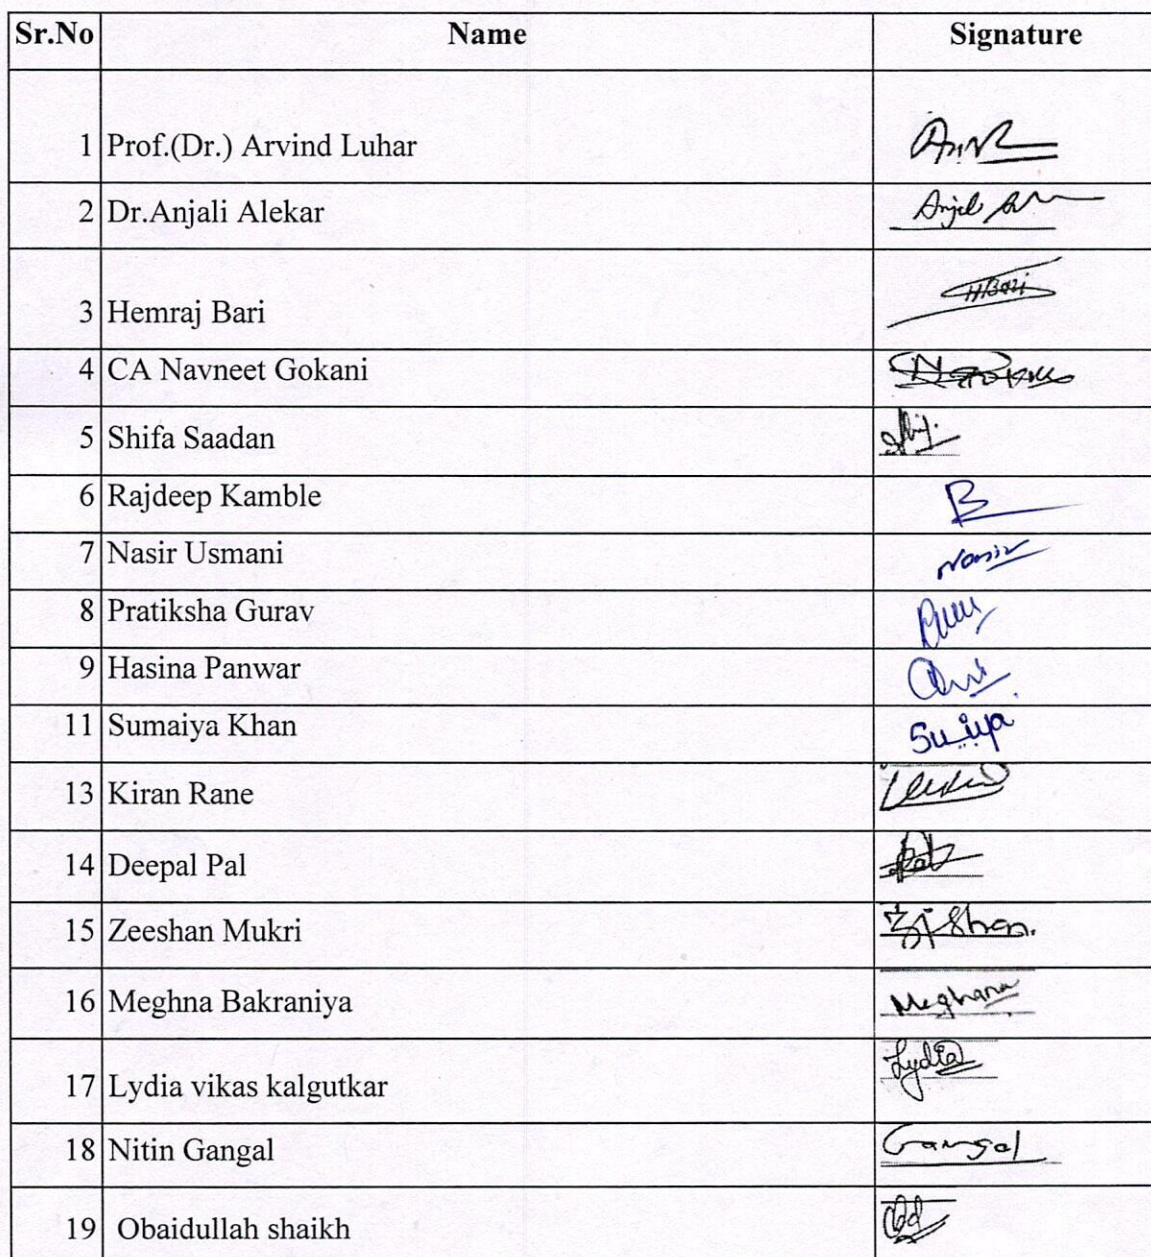 Sr.No Name Signature
1 Prof.(Dr.) Arvind Luhar
2 Dr.Anjali Alekar
3 Hemraj Bari HBari
4 CA Navneet Gokani
5 Shifa Saadan
6 Rajdeep Kamble
7 Nasir Usmani Nasir
8 Pratiksha Gurav
9 Hasina Panwar
11 Sumaiya Khan
13 Kiran Rane
14 Deepal Pal
15 Zeeshan Mukri
16 Meghna Bakraniya Meghana
17 Lydia vikas kalgutkar Lydia
18 Nitin Gangal Gangal
19 Obaidullah shaikh